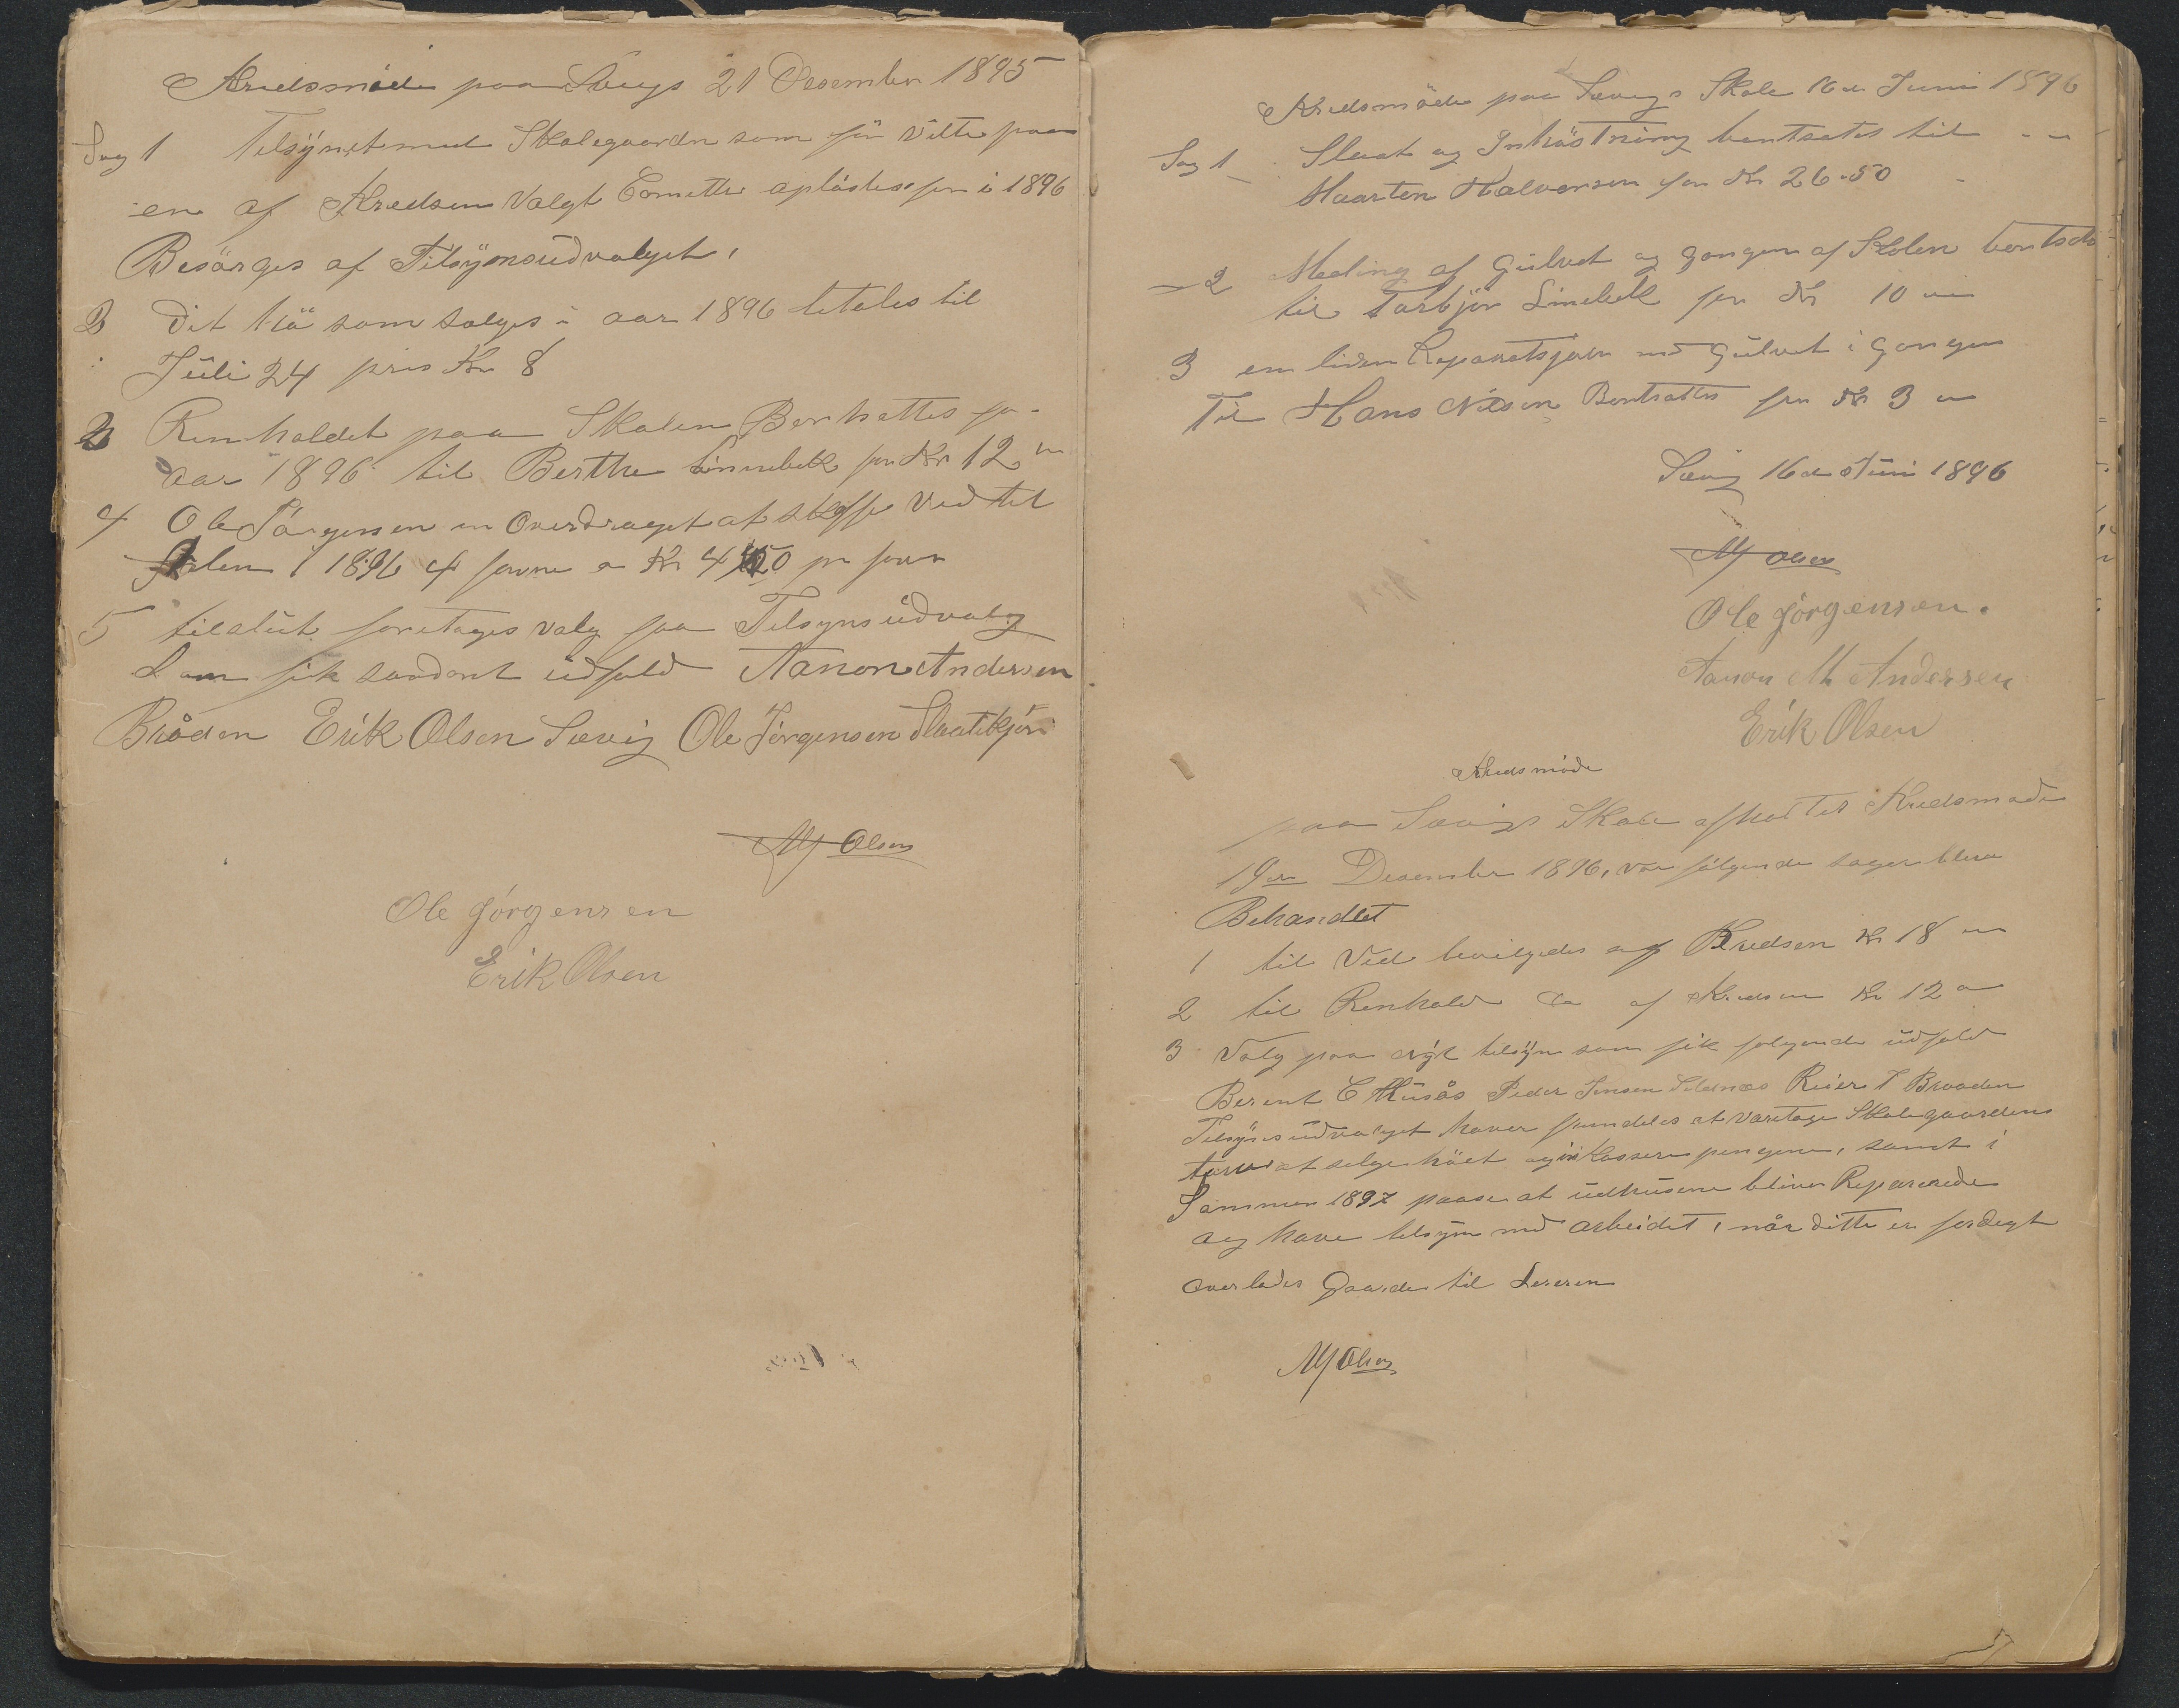 Kredsmöde paa Sævigs 21 Desember 1895
Sag 1 Tilsÿnet med Skolegaarden som för vilte paa
en af Kredsen Valgt Comette oplöstes for i 1896
Besörges af Tilsÿnsüdvalget,
2 Dit hö som salges i aar 1896 betales til
Jüli 24 pris Kr 8
3 Renholdet paa Skolen Bortsattes for
aar 1896 til Berthe Linnebek for Kr 12
4 Ole Jörgensen er Overdraget at skaffe Ved til
Skolen i 1896 4 favne a Kr 4 50 pr favn
5 tilslüt foretages valg paa Tilsyns üdvalg
som fik saadant üdfald Aanon Andersen
Bråden Erik Olsen Sævig Ole Jörgensen Slaatekjön
M Olsen
Ole Jörgensen
Erik Olsen
Kredsmöde paa Sævigs Skole 16de Juni 1896
Sag 1 Slaat og Inhöstning bortsattes til
Maarten Halvorsen for Kr 26.50
2 Maling af Gülvet og gangen af Skolen bortsat
til Torbjör Linebek for Kr 10
3 en liden Reparatsjon med Gülvet i gangen
Til Hans Nilsen Bortsattes for Kr 3
Sævig 16de Jüni 1896
M Olsen
Ole Jörgensen.
Aanon M Andersen
Erik Olsen
Kredsmöde
paa Sævigs Skole afholtes Kredsmöde
19de Desember 1896, vor fölgende sager blev
Behandlet
1 til Ved bevilgedes af Kredsen Kr 18
2 til Renhold da af Kredsen Kr 12
3 Valg paa nÿt tilsÿn som fik folgende üdfald
Berent C Husås Peder Jensen Sildnæs Reier T Braaden
Tilsÿnsüdvalget haver fremdeles at varetage Skolegaardens
tarv at selge höet og inkassere pengene, samt i
Sommer 1897 paase at üdhüsene bliver Reparerede
og have tilsyn med arbeidet, når dette er ferdigt
overlades Gaarden til Læreren
M Olsen